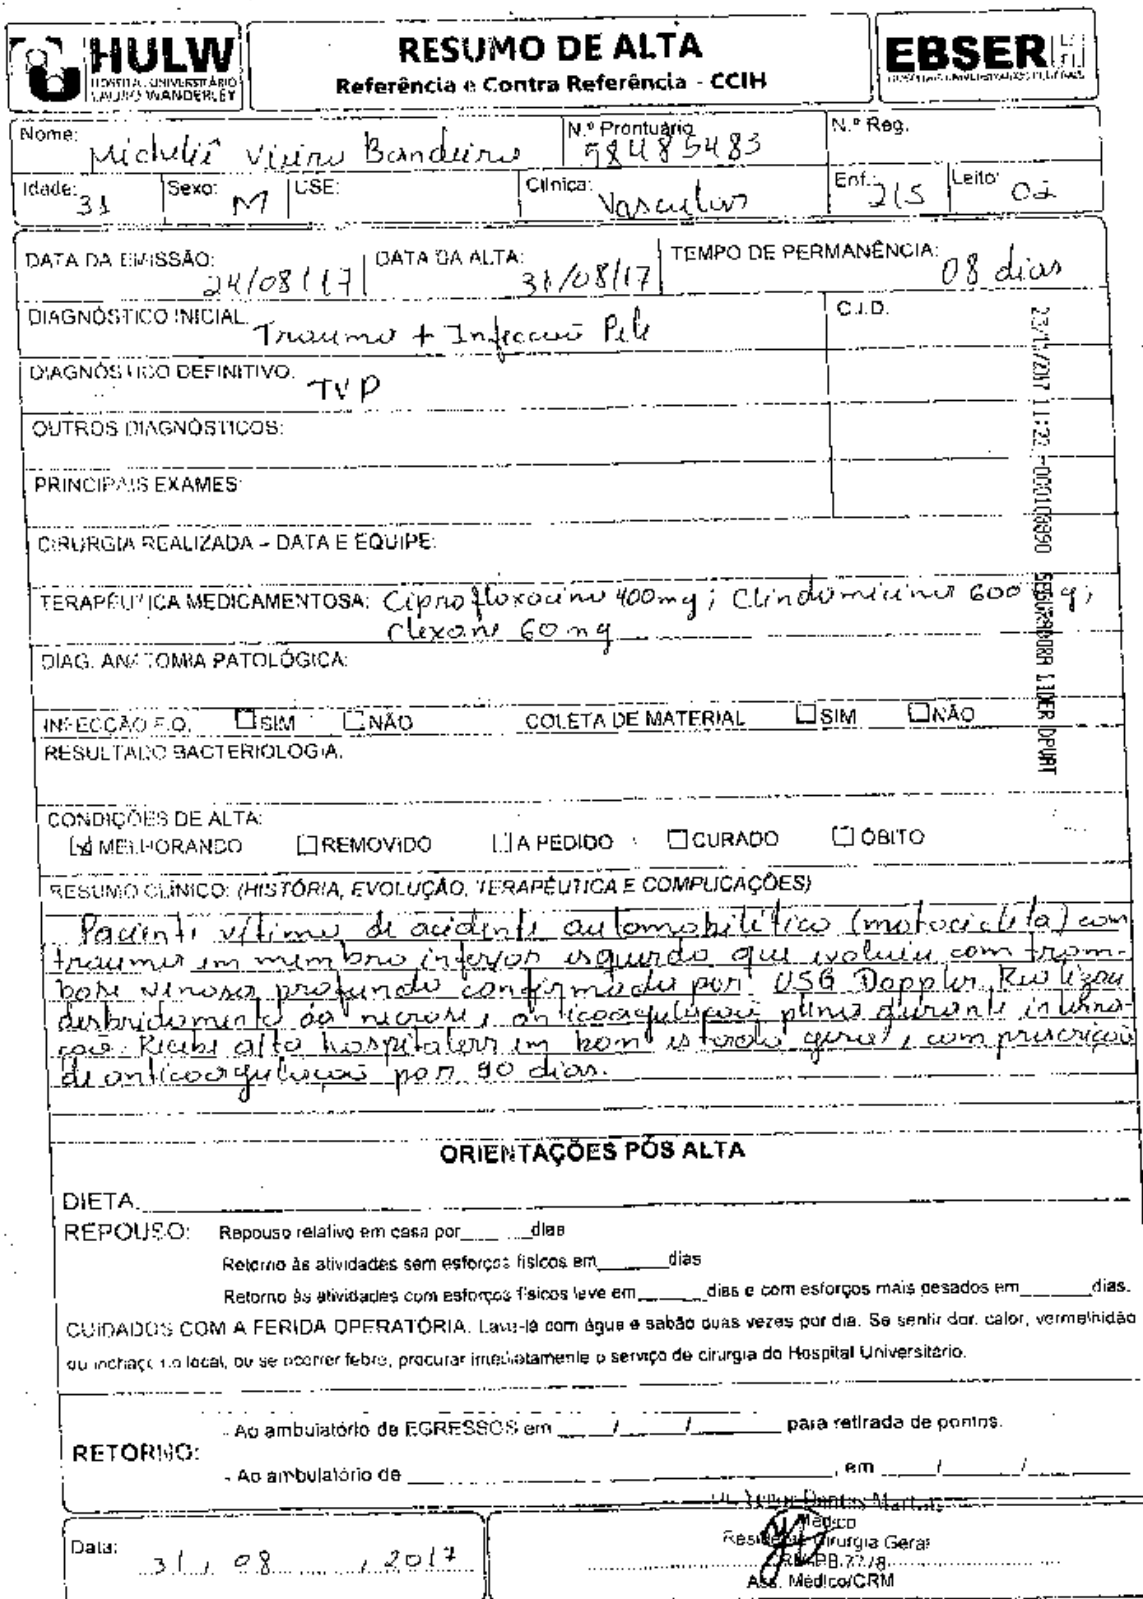 HULW
HOSPITAL UNIVERSITÁRIO
LAURO WANDERLEY
RESUMO DE ALTA
Referência e Contra Referência - CCIH
EBSERH
HOSPITAIS UNIVERSITÁRIOS FEDERAIS
Nome: Vieira Bandeira
N.º Prontuário 98485483
N.º Reg.
Idade: 31
Sexo: M
USE:
Clínica: Vascular
Enf.: 215
Leito: 02
DATA DA EMISSÃO: 24/08/17
DATA DA ALTA: 31/08/17
TEMPO DE PERMANÊNCIA: 08 dias
DIAGNÓSTICO INICIAL: Trauma + Infecção Pele
C.I.D.
DIAGNÓSTICO DEFINITIVO: TVP
OUTROS DIAGNÓSTICOS:
PRINCIPAIS EXAMES:
CIRURGIA REALIZADA – DATA E EQUIPE:
TERAPÊUTICA MEDICAMENTOSA: Ciprofloxacino 400mg; Clindamicina 600mg;
Clexane 60mg
DIAG. ANATOMIA PATOLÓGICA:
INFECÇÃO F.O. ☐SIM ☐NÃO COLETA DE MATERIAL ☐SIM ☐NÃO
RESULTADO BACTERIOLOGIA:
CONDIÇÕES DE ALTA:
☑ MELHORANDO ☐REMOVIDO ☐A PEDIDO ☐CURADO ☐ÓBITO
RESUMO CLÍNICO: (HISTÓRIA, EVOLUÇÃO, TERAPÊUTICA E COMPLICAÇÕES)
Paciente vítima de acidente automobilítico (motocicleta) com
trauma em membro inferior esquerdo que evoluiu com trom-
bose venosa profunda confirmada por USG Doppler. Realizou
desbridamento da necrose, anticoagulação plena durante interna-
ção. Recebe alta hospitalar em bom estado geral, com prescrição
de anticoagulação por 90 dias.
ORIENTAÇÕES PÓS ALTA
DIETA.
REPOUSO: Repouso relativo em casa por dias
Retorno às atividades sem esforços físicos em dias
Retorno às atividades com esforços físicos leve em dias e com esforços mais pesados em dias.
CUIDADOS COM A FERIDA OPERATÓRIA. Lave-lá com água e sabão duas vezes por dia. Se sentir dor, calor, vermelhidão
ou inchaço no local, ou se ocorrer febre, procurar imediatamente o serviço de cirurgia do Hospital Universitário.
RETORNO:
- Ao ambulatório de EGRESSOS em / / para retirada de pontos.
- Ao ambulatório de , em / /
Data: 31 / 08 / 2017
Médico
Residente Cirurgia Geral
Ass. Médico/CRM
SEGURADORA LIDER DPVAT